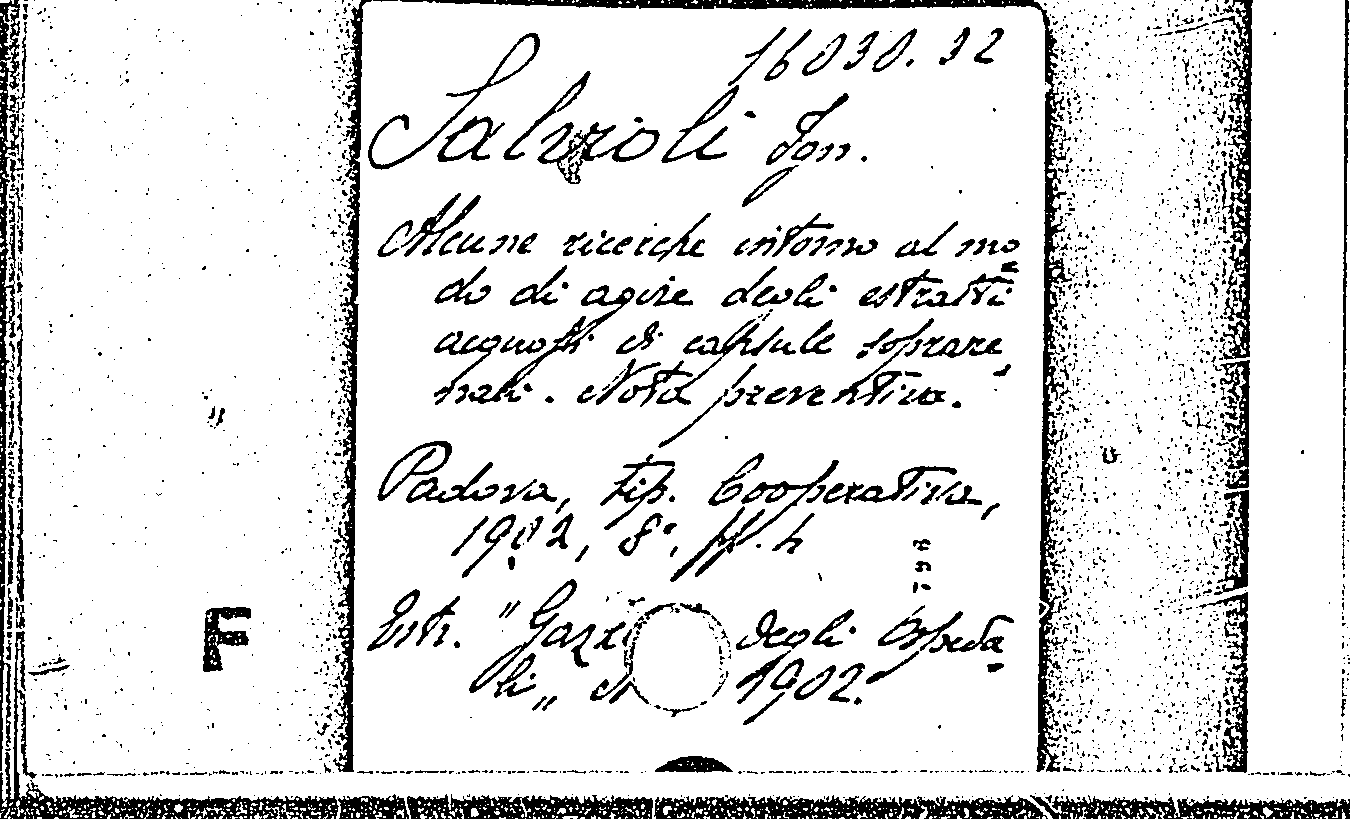 16030.32
Salvioli Ign.
Alcune ricerche intorno al mo-
do di agire degli estratti
acquosi di capsule soprare-
nali. Nota preventiva.
Padova, tip. Cooperativa,
1902, 8°, pp. 4
798
Estr. "Gazz degli Ospeda-
li" N 1902.
F